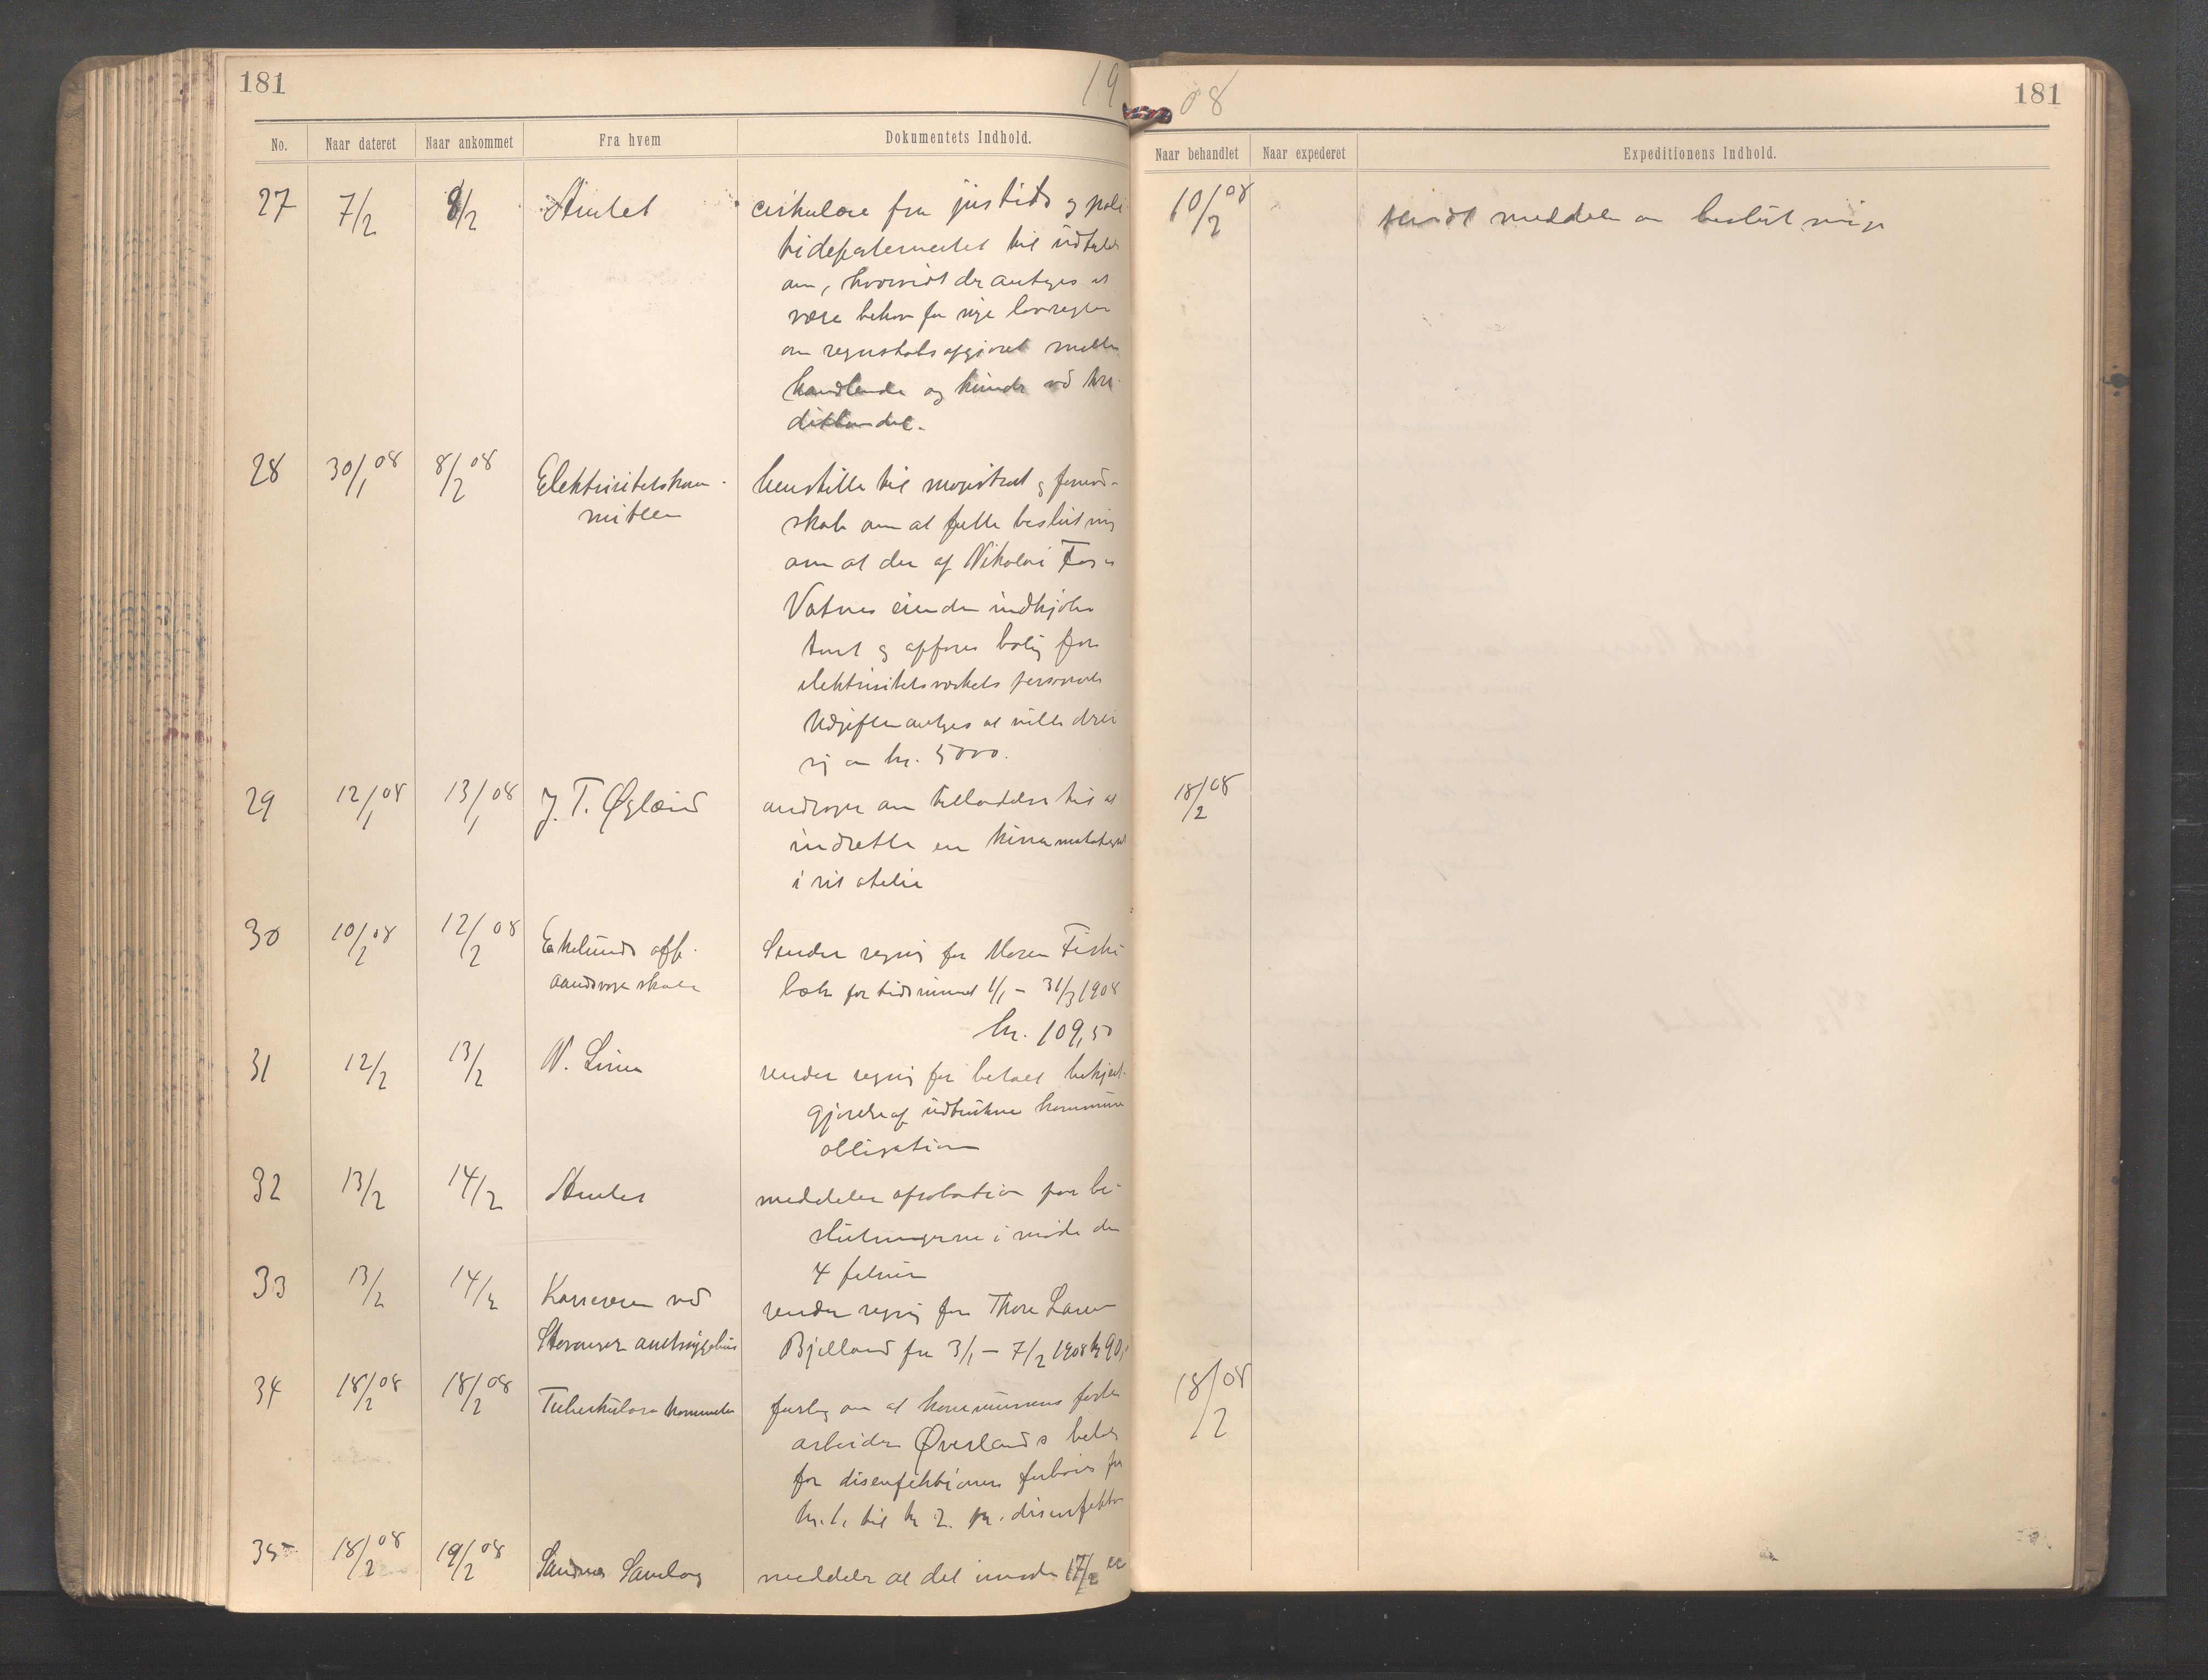 181
19
08
181
No. Naar dateret Naar ankommet Fra hvem Dokumentets Indhold.
Naar behandlet Naar expederet Expeditionens Indhold.
27 7/2 8/2 Amtet cirkulære fra justits og poli
tidepartementet til udtalelse
om, hvorvidt der antages at
være behov for nye lovregler
om regnskabsopgjøret mellem
handlende og kunder ved kre
dithandel.
10/2 08 sendt meddelelse om beslutning
28 30/1 08 8/2 08 Elektricitetskom-
miteen
henstiller til magistrat og formand-
skab om at fatte beslutning
om at der af Nikolai
Vatnes eiendom indkjøbes
tomt og opføres bolig for
elektricitetsverkets personale
Udgiften antages at ville dreie
sig om kr. 5000.
29 12/1 08 13/1 08 J. T. Øglænd androger om tilladelse til at
indrette en kinematograf
i sit atelie
18/2 08
30 10/2 08 12/2 08 Ekelunds off.
aandssvageskole
Sender regning for Maren Fiski
bæk for tidsrummet 1/1 – 31/3 1908
kr. 109,50
31 12/2 13/2 N. Lima sender regning for betalt bekjendt-
gjørelse af udtrukne kommune
obligation
32 13/2 14/2 Amtet meddeler aprobation paa be-
slutningerne i møde den
4 februar
33 13/2 14/2 Kassereren ved
Stavanger amtssygehus
sender regning for Thore Larsen
Bjelland fra 3/1 – 7/2 1908 kr 90,
34 18/2 08 18/2 08 Tuberkulosekommiteen forslag om at kommunens faste
arbeider Øverlands betaling
for disenfektioner forhøies fra
kr. 1, til kr 2. pr. disenfektion
18/2 08
35 18/2 08 19/2 08 Sandnes Samlag meddeler at det i møde 17/2